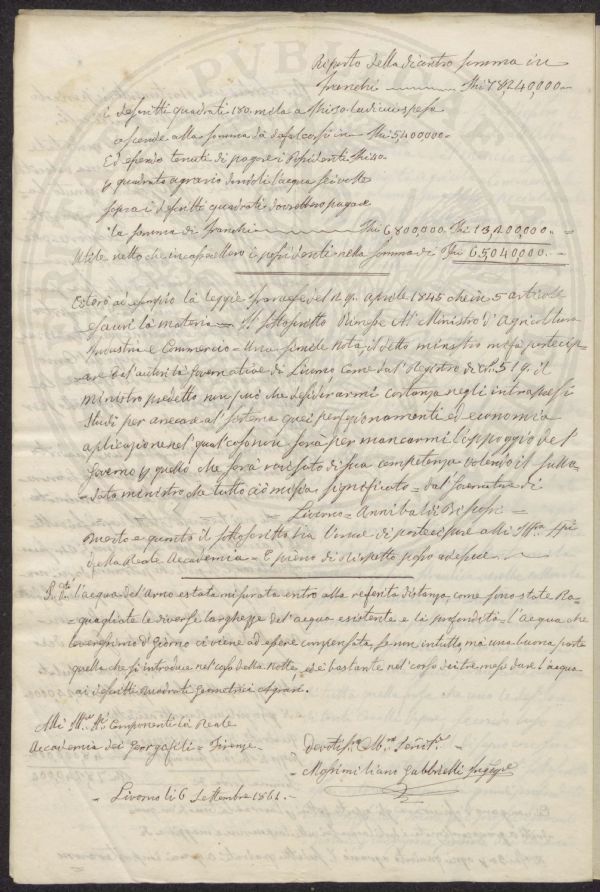 Riporto della dicontro somma in
Franchi — Fhi 78,240,000.-
i descritti quadrati 180. mila a Fhi 30 l'adivisi spesa
ascende alla somma da defalcarsi in - Fhi 5,400,000.-
Ed essendo tenuti di pagare i Possidenti Fhi 40
quadrato agrario dandoli l'acqua sei volte
sopra i descritti quadrati dovrebbero pagare
la somma di Franchi — Fhi 6,800,000. Fhi 13,200,000. =
Utile netto che incasserebbero i possidenti nella somma di Fhi 65,040,000. =
Esterò ad esempio la leggie Francese del 29. aprile 1845 che in 5 articoli
esaurì la materia = Il sottoscritto Rimesse Al Ministro d'Agricoltura
Industria e Commercio = Una simile Nota, il detto ministro mi fà partecip-
= are dal'autorità Governativa di Livorno come dal Registro di N. 519. il
ministro predetto non può che desiderarmi costanza negli intrapresi
Studi per arrecare al sistema quei perfezionamenti ed economia
aplicazione nel qual caso non sarà per mancarmi l'appoggio del
Governo quello che sarà ravisato di sua competenza volendo il sulla-
= dato ministro che tutto ciò mi sia significato = dal Governatore di
Livorno = Annibaldi Biscossi =
Questo è quanto il sottoscritto ha l'onore di partecipare alli
della Reale Accademia = E pieno di rispetto passo ad essere
P. S. l'acqua del'Arno è stata misurata entro alla referita distanza, come sono state Ra-
= guagliate le diverse larghezze del'acqua esistente e la profondità. l'acqua che
leveressimo d'Giorno ci viene ad essere compensata, se non in tutto, ma una buona parte
quella che si introduce nel caso della Notte, ed è bastante nel corso dei tre mesi dare l'acqua
ai descritti quadrati Geometrici Agrari.
Alli Componenti la Reale
Accademia dei Georgofili = Firenze
Devotis.
Massimiliano Gabbrielli Ingeg.
- Livorno li 6 Settembre 1861. -